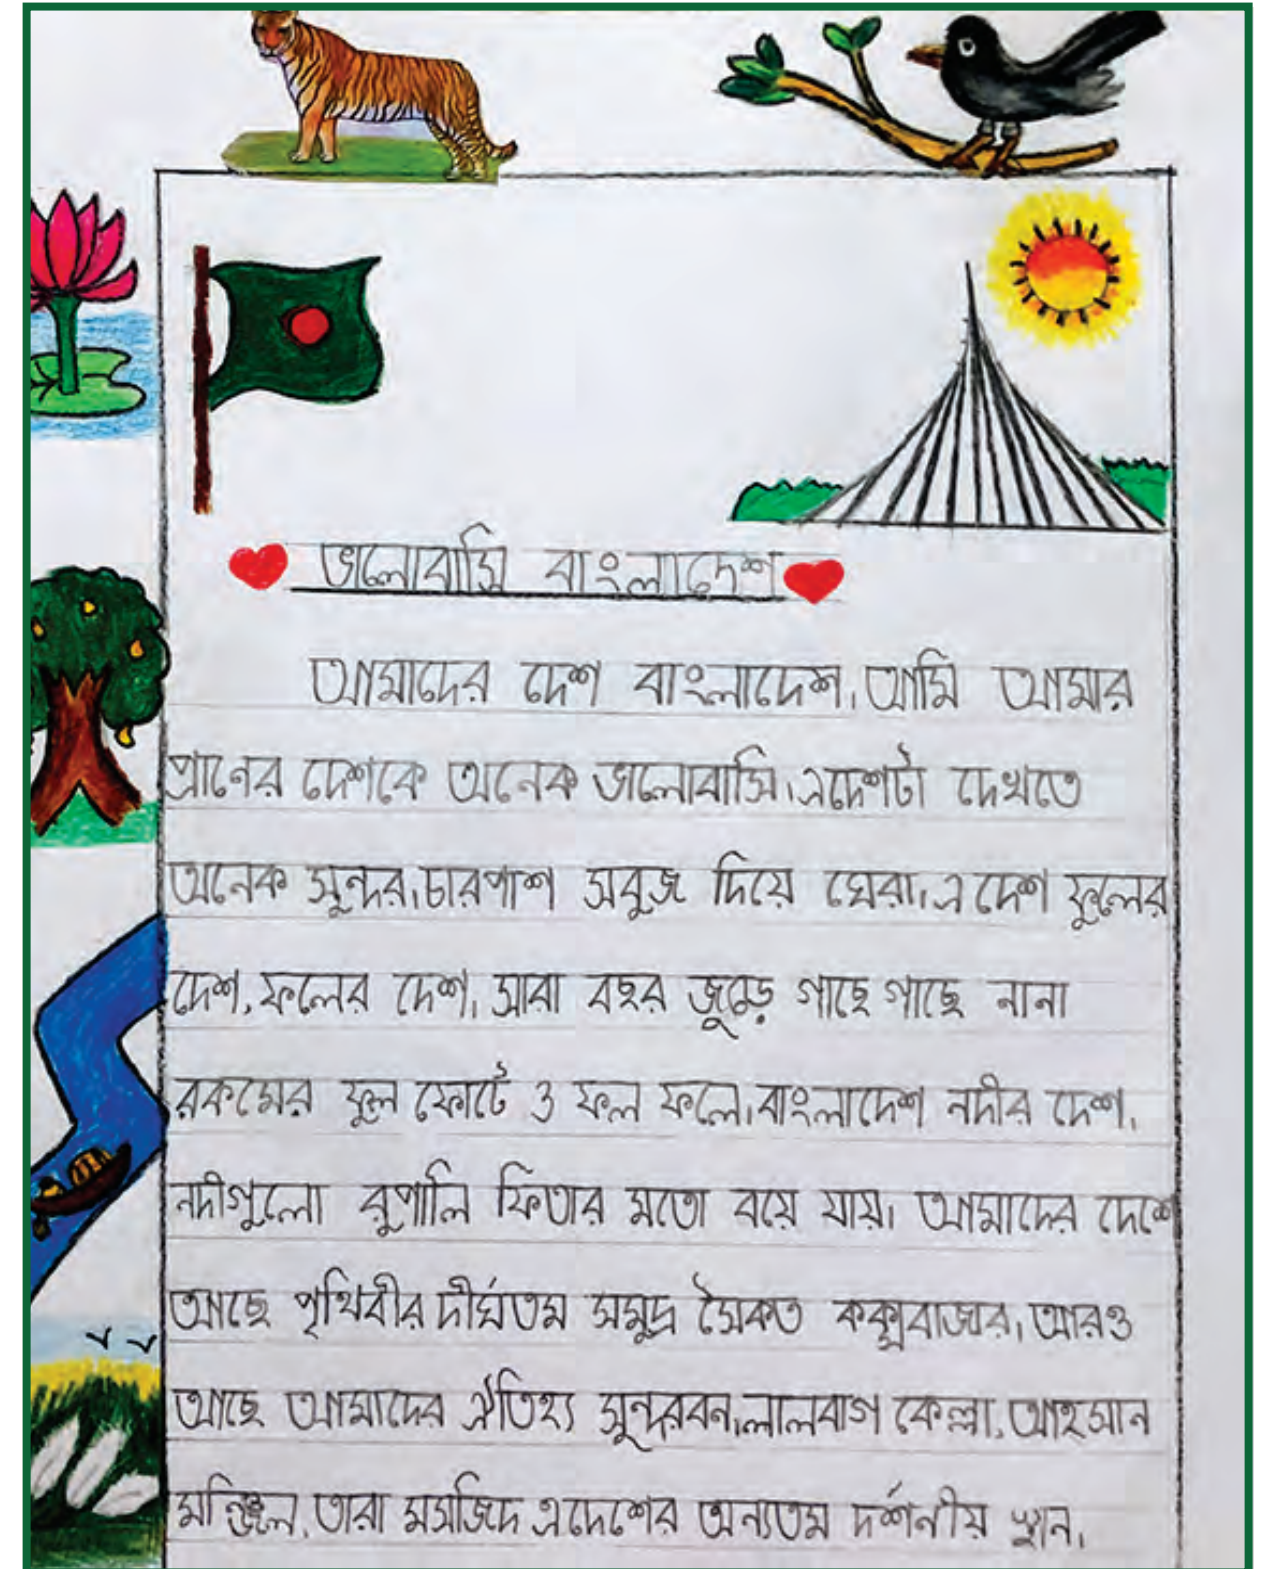 ভালোবাসি বাংলাদেশ
আমাদের দেশ বাংলাদেশ। আমি আমার
প্রাণের দেশকে অনেক ভালোবাসি। এদেশটা দেখতে
অনেক সুন্দর। চারপাশ সবুজ দিয়ে ঘেরা। এ দেশ ফুলের
দেশ, ফলের দেশ। সারা বছর জুড়ে গাছে গাছে নানা
রকমের ফুল ফোটে ও ফল ফলে। বাংলাদেশ নদীর দেশ।
নদীগুলো রুপালি ফিতার মতো বয়ে যায়। আমাদের দেশে
আছে পৃথিবীর দীর্ঘতম সমুদ্র সৈকত কক্সবাজার। আরও
আছে আমাদের ঐতিহ্য সুন্দরবন। লালবাগ কেল্লা, আহসান
মঞ্জিল, তারা মসজিদ এদেশের অন্যতম দর্শনীয় স্থান।